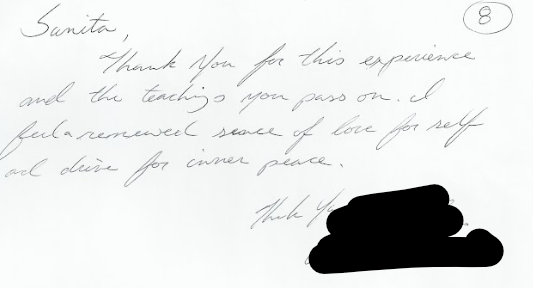 Sunita,
8
Thank You for this experience
and the teachings you pass on. I
feel a renewed sense of love for self
and drive for inner peace.
Thank Yo